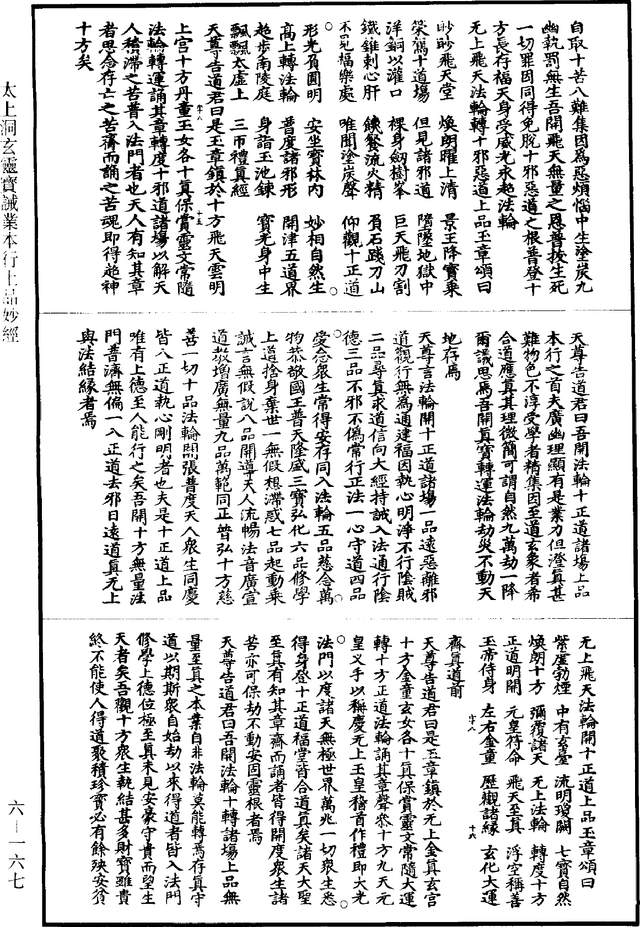 自取十苦八難集因為惡煩惱中生塗炭九
幽執罰無生吾開飛天無量之恩普拔生死
一切罪因同得免脫十邪惡道之根普登十
方長存福天身受威光永起法輪
无上飛天法輪轉十邪惡道上品玉章頌曰
眇眇飛天堂　煥朗躍上清　景王降寶乘
策駕十道場　但見諸邪道　墮墜地獄中
洋銅以灌口　裸身劒樹峯　巨天飛刀割
鐵錐刺心肝　鑊餐流火精　負石踐刀山
不見福樂處　唯聞塗炭聲　仰觀十正道
形光負圓明　安坐寶林內　妙相自然生
高上轉法輪　普度諸邪形　開津五道界
起步南陵庭　身詣玉池鍊　寶光身中生
飄飄太虛上　三币禮真經
天尊告道君曰是玉章鎮於十方飛天雲明
上宫十方丹童玉女各十真保賞靈文常隨
法輪轉運誦其章轉度十邪道諸場以解天
人積滯之苦普入法門者也天人有知其章
者思念存亡之苦齋而誦之苦魂即得超神
十方矣
太上洞玄靈寶誡業本行上品妙經
天尊告道君曰吾開法輪十正道諸場上品
本行之首夫廣幽理顯有是業力但澄真甚
難拘色不淳受學者精集因至道玄象者希
合道應真其理微簡可謂自然九萬劫一降
爾議思焉吾開真寶轉運法輪劫災不動天
地存焉
天尊言法輪開十正道諸場一品遠惡離邪
道觀行無為通達福因執心明淨不行陰賊
二品尋真求道信向大經持誡入法通行陰
德三品不邪不偽常行正法一心守道四品
受念衆生常得安存同入法輪五品慈念萬
物恭敬國王普天隆盛三寶弘化六品修學
上道捨身棄世一無假想滯惑七品起動乘
誡言無假說八品開導天人流暢法音廣宣
道教增廣無量九品萬範同正普弘十方慈
善一切十品法輪開張普度天人衆生同慶
皆入正道執心剛明者也夫是十正道上品
唯有上德至人能行之矣吾開十方無量法
門普濟無偏一入正道去邪日遠道真无上
與法結緣者焉
无上飛天法輪開十正道上品玉章頌曰
紫虛勃煙　中有玄臺　流明瓊闕　七寶自然
煥朗十方　彌覆諸天　无上法輪　轉度十方
正道明開　元皇符命　飛天玉真　浮空稱善
玉帝侍身　左右金童　歷觀諸緣　玄化大運
齋真道前
天尊告道君曰是玉章鎮於无上金真玄宫
十方金童玄女各十真保賞靈文常隨大運
轉十方正道法輪誦其章聲參十方九天元
皇叉手以稱慶无上玉皇稽首作禮即大光
法門以度諸天無極世界萬兆一切衆生悉
得身登十正道福堂皆合道真矣諸天大聖
至真有知其章齋而誦者皆得開度衆生諸
苦亦可保劫不動安固靈根者焉
天尊告道君曰吾開法輪十轉諸場上品無
量至真之本業自非法輪莫能轉焉存真守
道以期斯衆自始劫以來得道者皆入法門
修學上德位極至真未見安豪守貴而望生
天者矣吾觀十方衆生執結甚多財寶雖貴
終不能使人得道聚積珍寶必有餘殃安貧
六－一六七